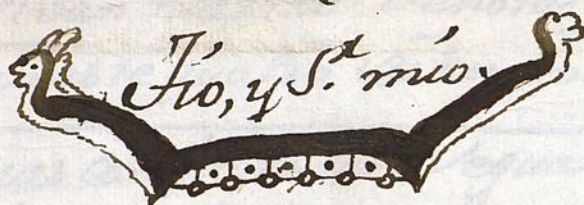 Tio, y S.r mio.